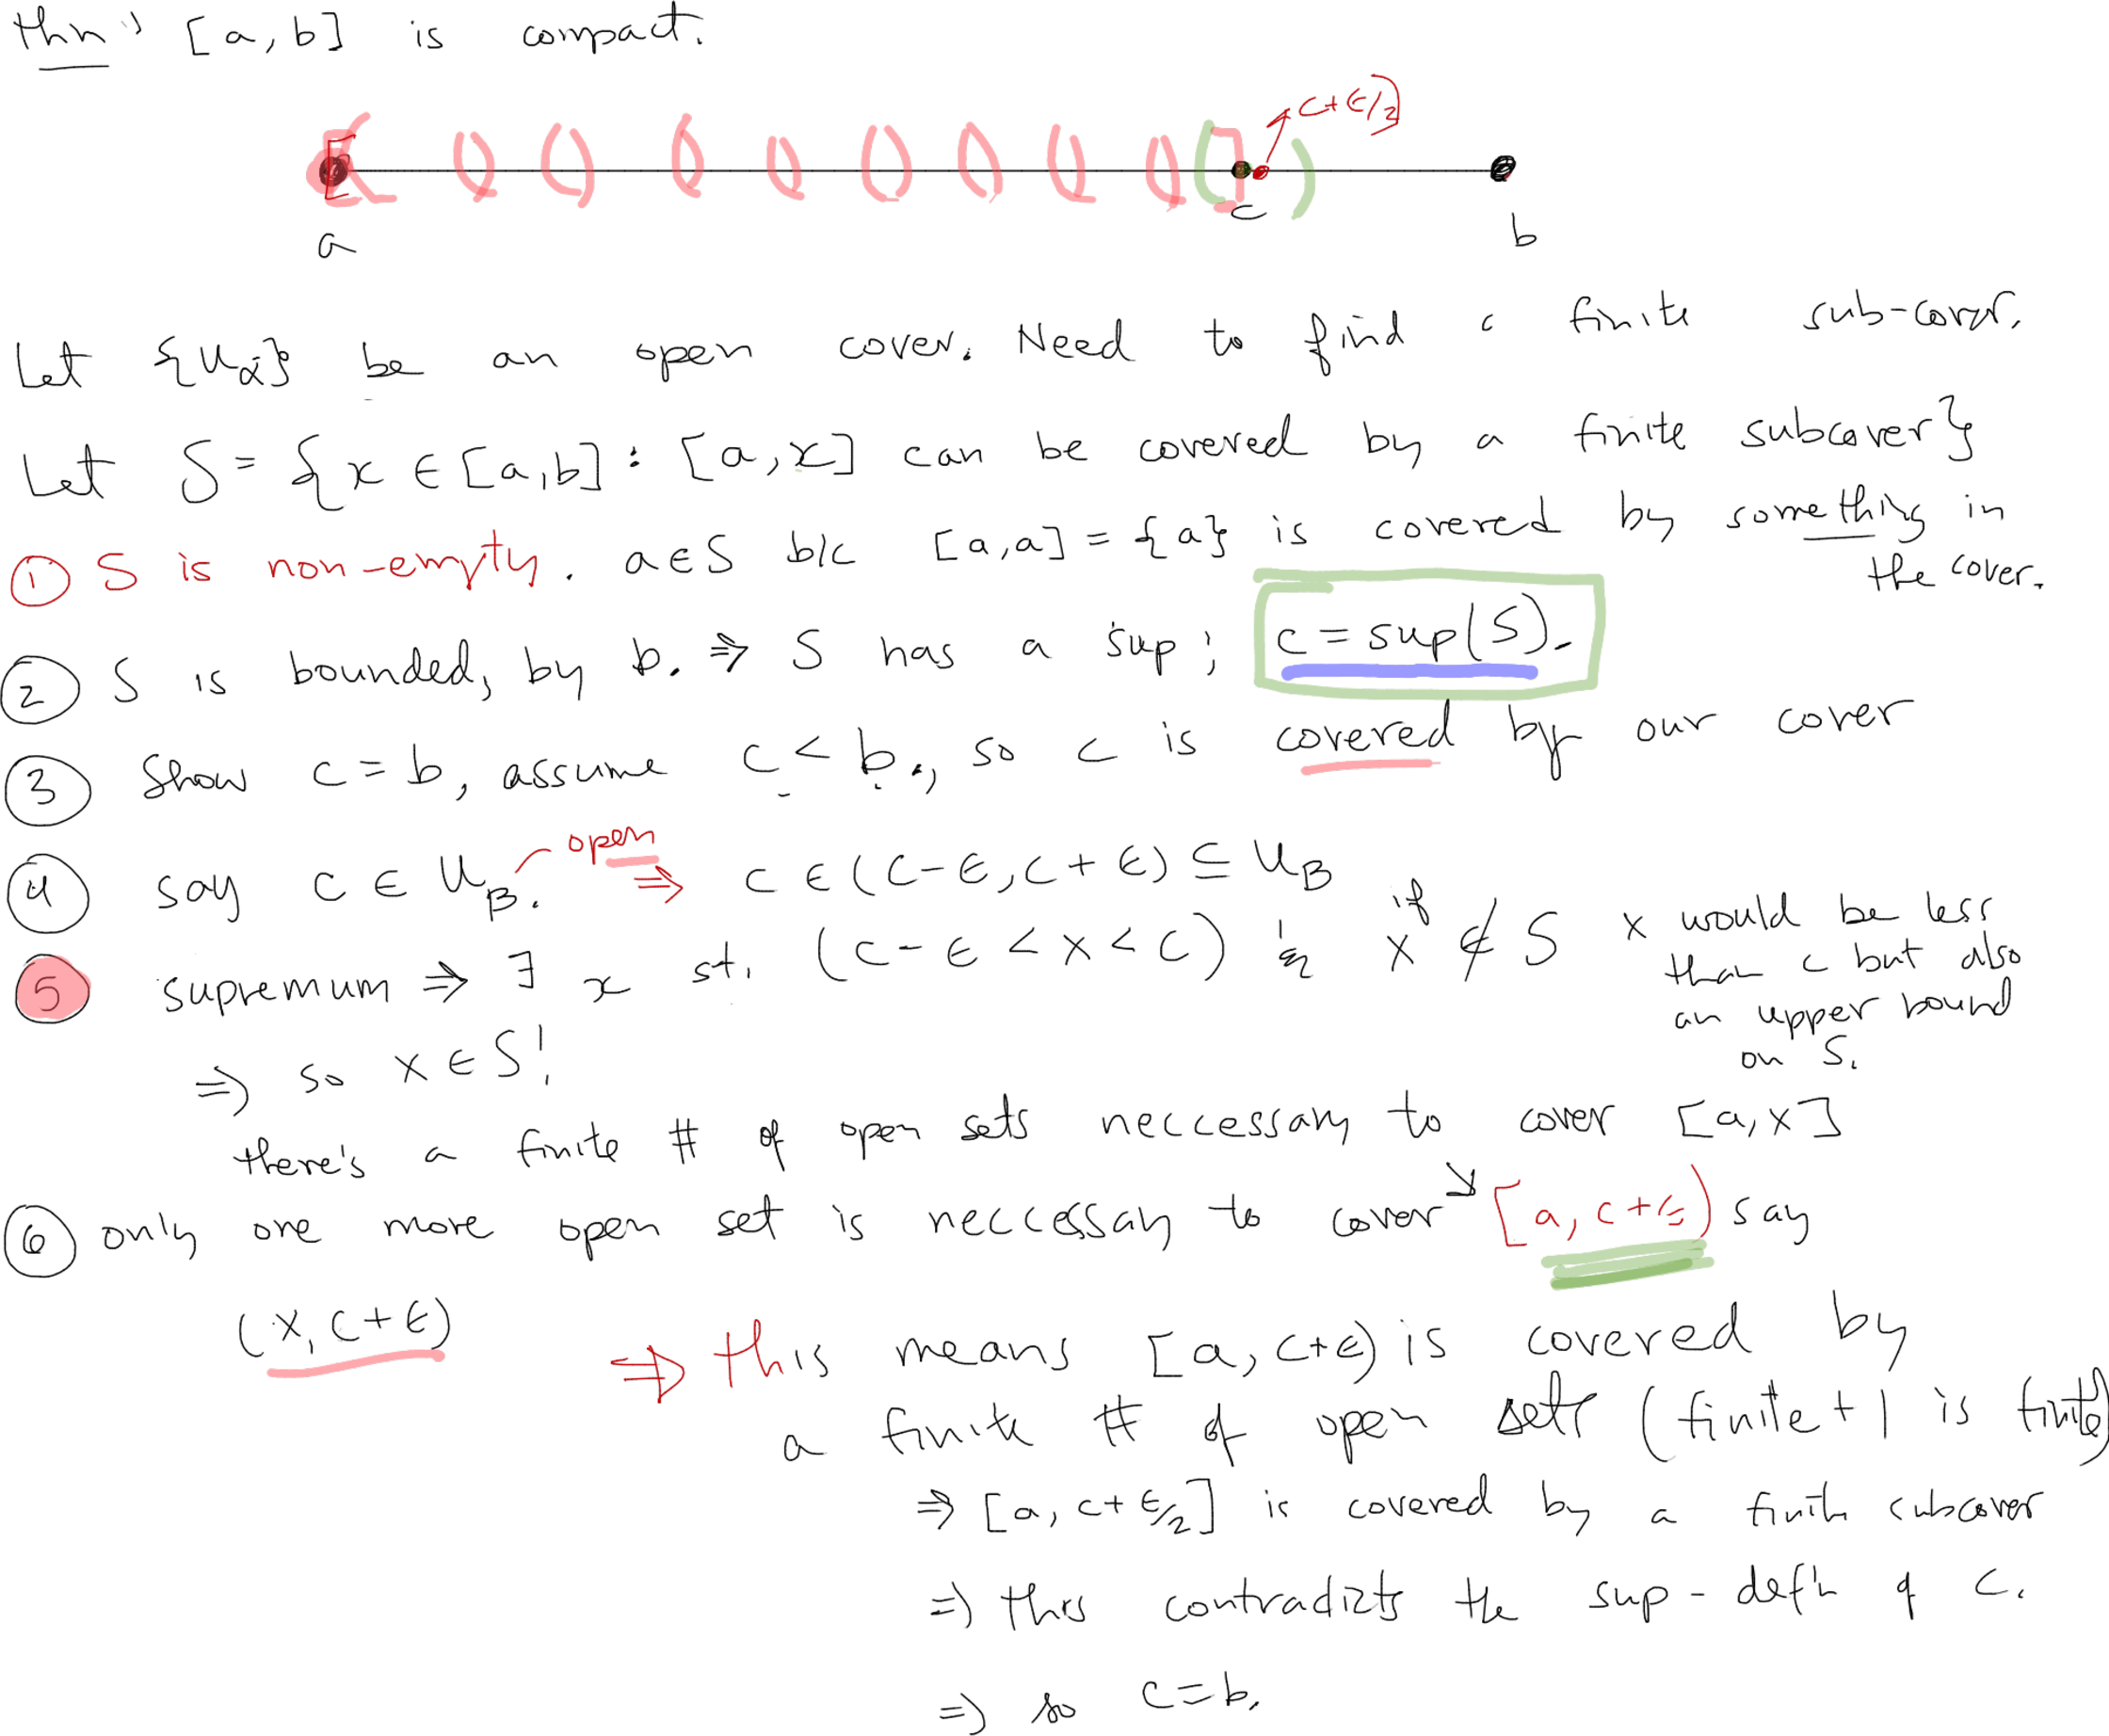 thm: [a,b] is compact.
c+ϵ/2
a
c
b
Let {U_α} be an open cover. Need to find a finite sub-cover.
Let S = {x ∈ [a,b] : [a,x] can be covered by a finite subcover}
① S is non-empty. a∈S b/c [a,a] = {a} is covered by something in
the cover.
② S is bounded, by b. ⇒ S has a sup; c = sup(S).
③ Show c = b, assume c < b, so c is covered by our cover
④ say c ∈ U_β. open ⇒ c ∈ (c-ϵ, c+ϵ) ⊆ U_β
⑤ supremum ⇒ ∃ x st. (c-ϵ < x < c) & if x ∉ S x would be less
than c but also
an upper bound
on S.
⇒ so x ∈ S!
there's a finite # of open sets neccessary to cover [a,x]
⑥ only one more open set is neccessary to cover [a, c+ϵ) say
(x, c+ϵ)
⇒ this means [a, c+ϵ) is covered by
a finite # of open sets (finite+1 is finite)
⇒ [a, c+ϵ/2] is covered by a finite subcover
⇒ this contradicts the sup-def'n of c.
⇒ so c=b.